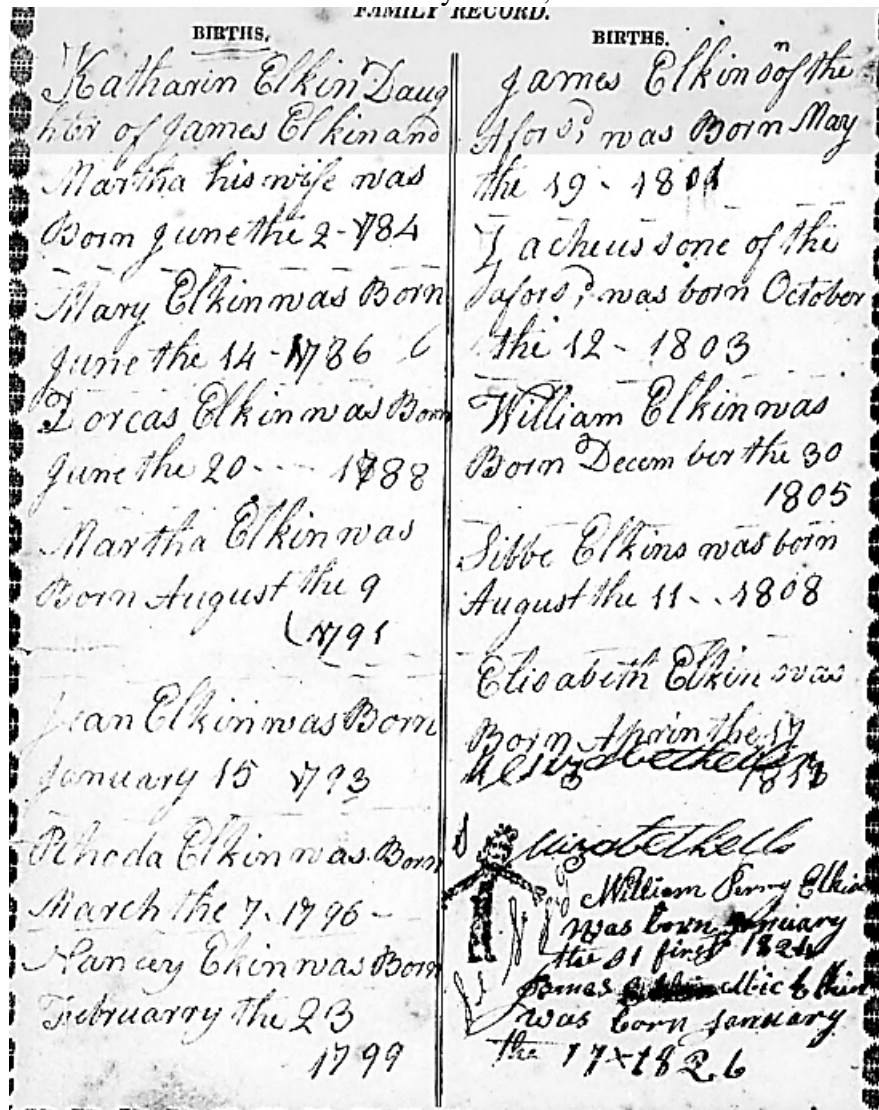 FAMILY RECORD.
BIRTHS.
Katharin Elkin Daug
hter of James Elkin and
Martha his wife was
Born June the 2 - 1784
Mary Elkin was Born
June the 14 - 1786
Dorcas Elkin was Born
June the 20 - - - 1788
Martha Elkin was
Born August the 9
1791
Jean Elkin was Born
January 15 1793
Rhoda Elkin was Born
March the 7. 1796 -
Nancey Elkin was Born
Februarry the 23
1799
BIRTHS.
James Elkin son of the
Aforsd was Born May
the 19 - 1801
Zacheus sone of the
aforsd was born October
the 12 - 1803
William Elkin was
Born December the 30
1805
Sibbe Elkins was born
August the 11 - - 1808
Elisabeth Elkin was
Born the 17
William Perry Elkin
was born January
the 01 first 1824
James Elkin
was born January
the 17 x 1826